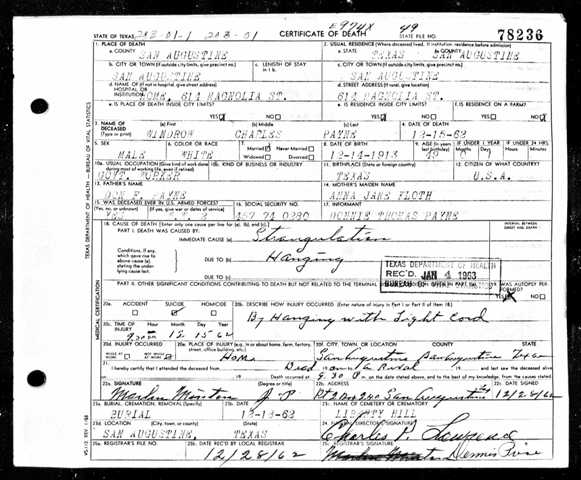 E974X 49
STATE OF TEXAS 203-01-1 203-01 CERTIFICATE OF DEATH STATE FILE NO. 78236
1. PLACE OF DEATH 2. USUAL RESIDENCE (Where deceased lived. If institution, residence before admission)
a. COUNTY SAN AUGUSTINE a. STATE TEXAS b. COUNTY SAN AUGUSTINE
b. CITY OR TOWN (If outside city limits, give precinct no.) c. LENGTH OF STAY c. CITY OR TOWN (If outside city limits, give precinct no.)
SAN AUGUSTINE SAN AUGUSTINE
d. NAME OF (If not in hospital, give street address) d. STREET ADDRESS (If rural, give location)
HOSPITAL OR
INSTITUTION HOME, 614 MAGNOLIA ST. 614 MAGNOLIA ST.
e. IS PLACE OF DEATH INSIDE CITY LIMITS? YES NO e. IS RESIDENCE INSIDE CITY LIMITS? YES NO f. IS RESIDENCE ON A FARM? YES NO
3. NAME OF DECEASED (a) First (b) Middle (c) Last 4. DATE OF DEATH
(Type or print) WINDROW CHARLES PAYNE 12-15-62
5. SEX 6. COLOR OR RACE 7. Married Never Married 8. DATE OF BIRTH 9. AGE (In years IF UNDER 1 YEAR
MALE WHITE Widowed Divorced 12-14-1913 49
10a. USUAL OCCUPATION (Give kind of work done 10b. KIND OF BUSINESS OR INDUSTRY 11. BIRTHPLACE (State or foreign country) 12. CITIZEN OF WHAT COUNTRY?
GOVT. TEXAS U.S.A.
13. FATHER'S NAME 14. MOTHER'S MAIDEN NAME
F. PAYNE ANNA JANE FLOTH
15. WAS DECEASED EVER IN U.S. ARMED FORCES? 16. SOCIAL SECURITY NO. 17. INFORMANT
YES 457 24 0280 THOMAS PAYNE
18. CAUSE OF DEATH (Enter only one cause per line for (a), (b), and (c).) INTERVAL BETWEEN ONSET AND DEATH
PART I. DEATH WAS CAUSED BY:
IMMEDIATE CAUSE (a) Strangulation
Conditions, if any, which gave rise to above cause (a) stating the underlying cause last. DUE TO (b) Hanging
DUE TO (c)
TEXAS DEPARTMENT OF HEALTH
REC'D. JAN 4 1963
BUREAU OF VITAL STATISTICS
PART II. OTHER SIGNIFICANT CONDITIONS CONTRIBUTING TO DEATH BUT NOT RELATED TO THE TERMINAL 19. WAS AUTOPSY PERFORMED? YES NO
20a. ACCIDENT SUICIDE HOMICIDE 20b. DESCRIBE HOW INJURY OCCURRED (Enter nature of injury in Part I or Part II of item 18)
By Hanging with Light Cord
20c. TIME OF INJURY Hour Month Day Year
9:30 P.M. 12 15-62
20d. INJURY OCCURRED 20e. PLACE OF INJURY 20f. CITY, TOWN, OR LOCATION COUNTY STATE
Home San Augustine San Augustine Texas
21. I hereby certify that I attended the deceased from Dead on Arrival and last saw the deceased alive
Death occurred at 9:30 P m. on the date stated above, and to the best of my knowledge, from the causes stated.
22a. SIGNATURE 22b. ADDRESS 22c. DATE SIGNED
J P Rt 2 Box 240 San Augustine 12/28/62
23a. BURIAL, CREMATION, REMOVAL (Specify) 23b. DATE 23c. NAME OF CEMETERY OR CREMATORY
BURIAL 12-18-62 LIBERTY HILL
23d. LOCATION (City, town, or county) (State) 24. FUNERAL DIRECTOR'S SIGNATURE
SAN AUGUSTINE, TEXAS Charles
25a. REGISTRAR'S FILE NO. 25b. DATE REC'D BY LOCAL REGISTRAR 25c. REGISTRAR'S SIGNATURE
12/28/62 Dennis Price
TEXAS DEPARTMENT OF HEALTH — BUREAU OF VITAL STATISTICS
MEDICAL CERTIFICATION